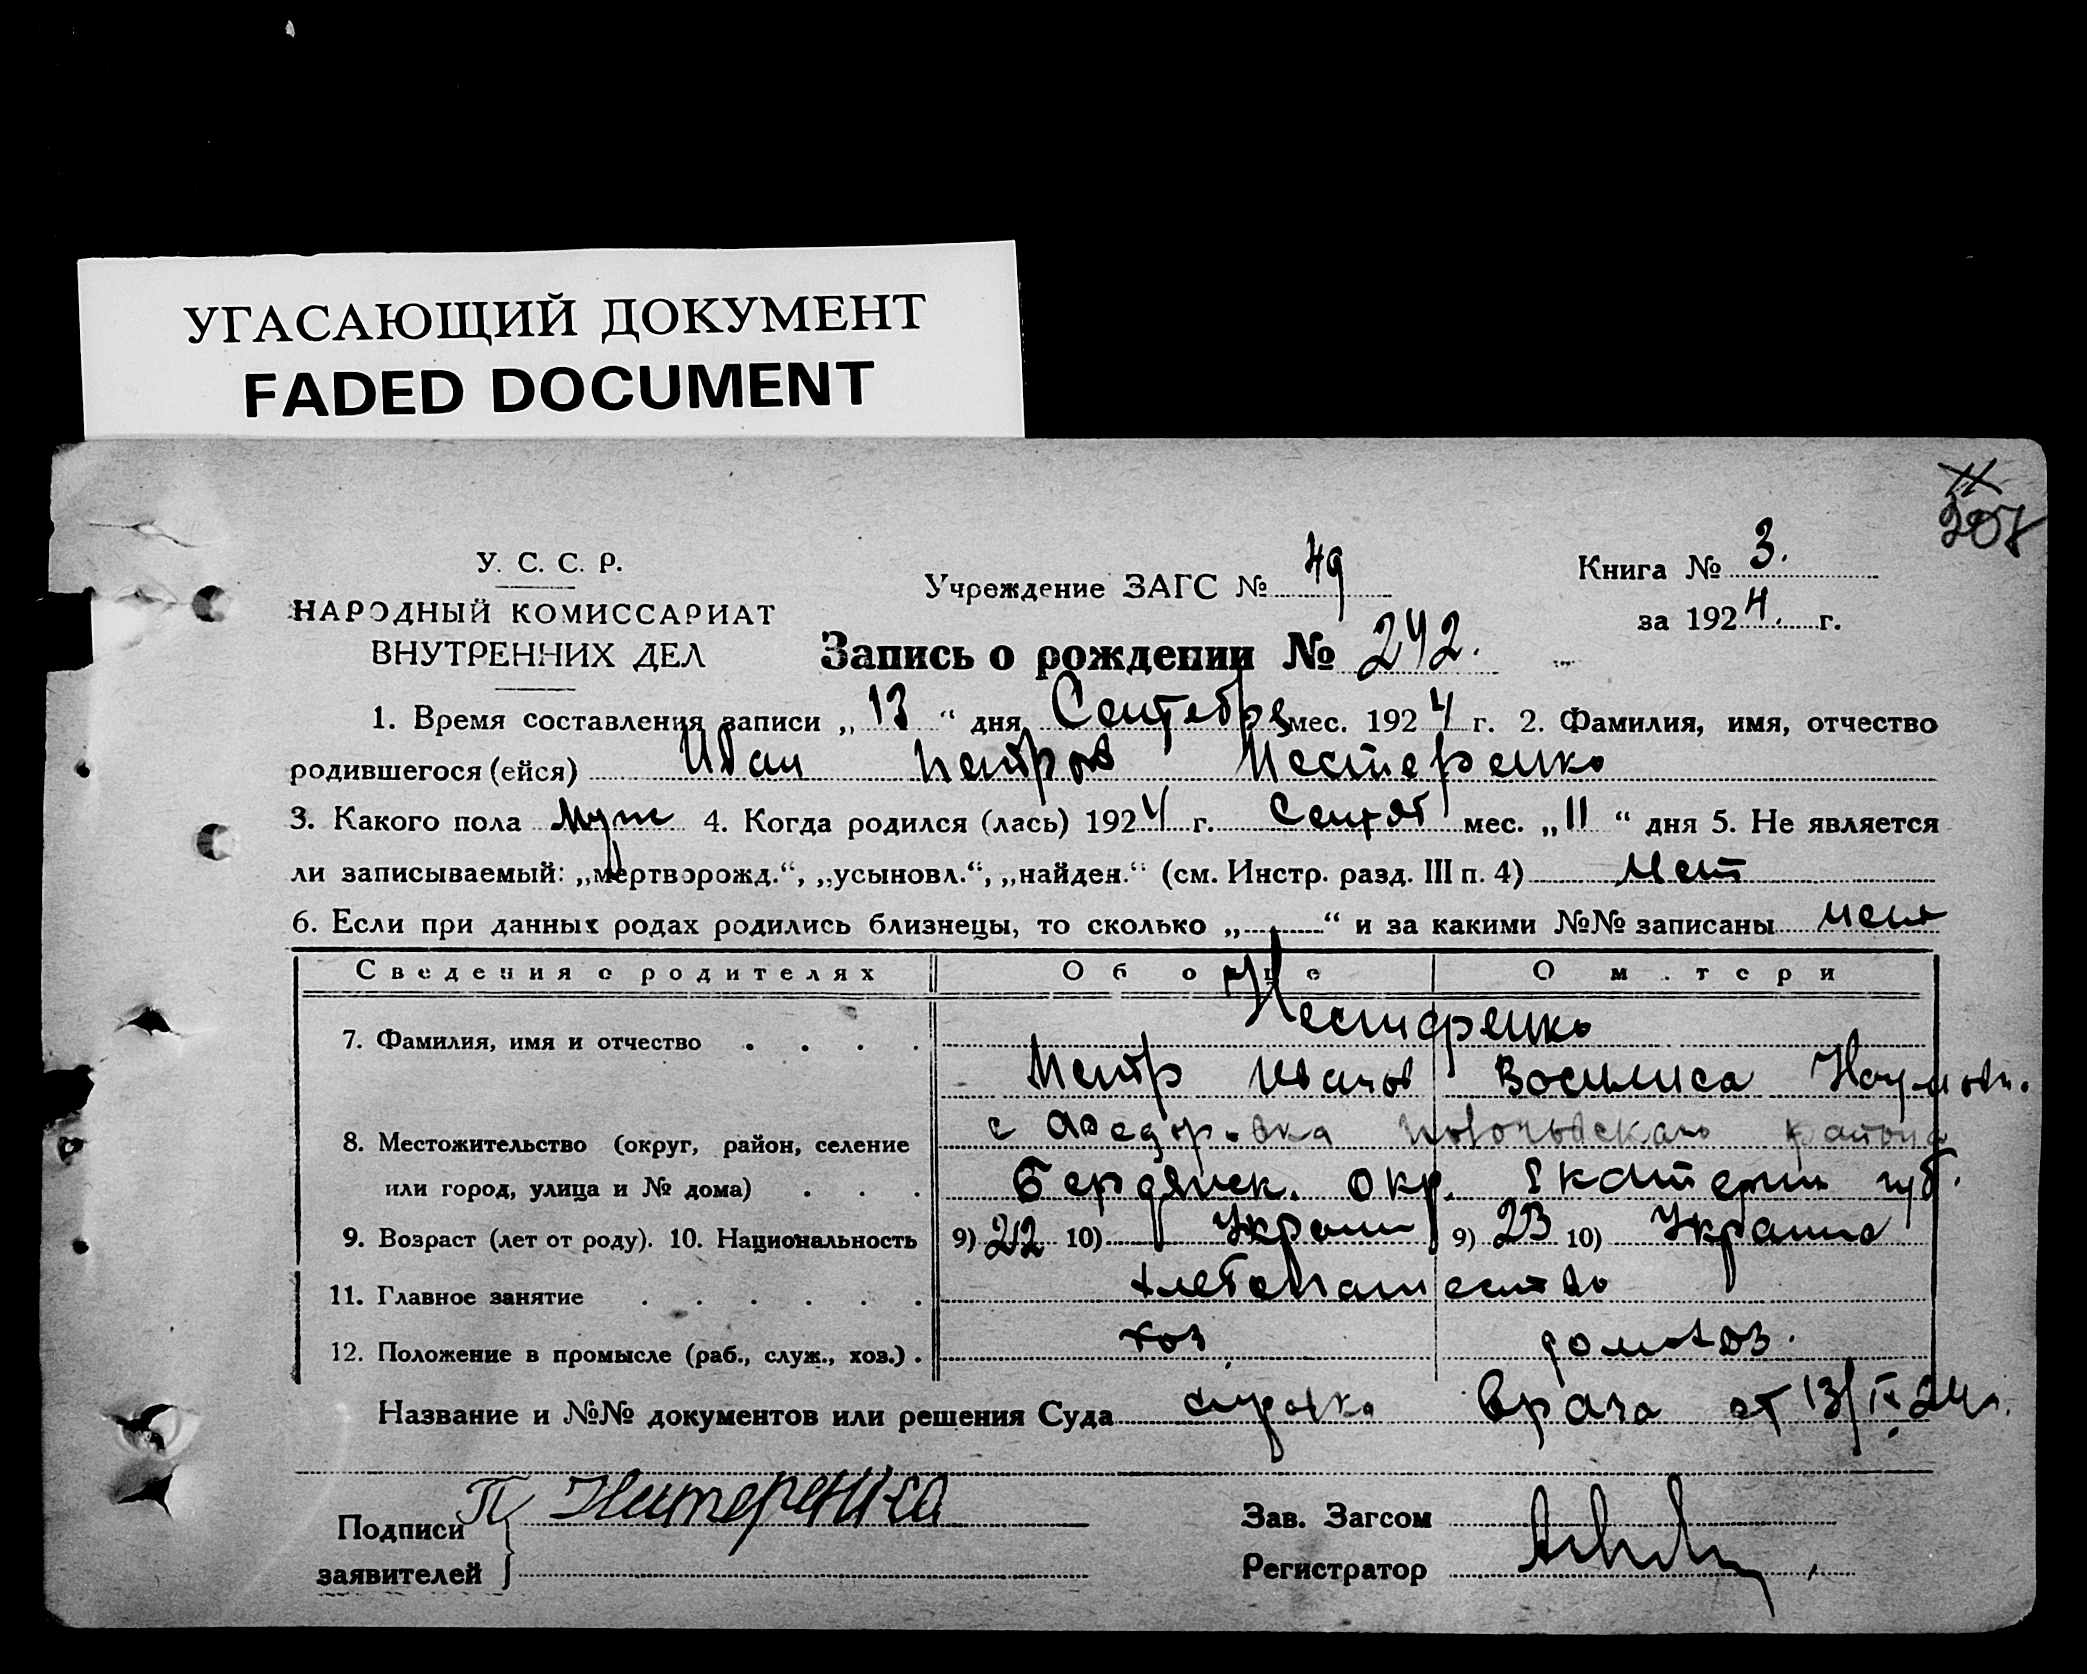 УГАСАЮЩИЙ ДОКУМЕНТ
FADED DOCUMENT
207
У. С. С. Р.
НАРОДНЫЙ КОМИССАРИАТ
ВНУТРЕННИХ ДЕЛ
Учреждение ЗАГС № 49
Книга № 3.
за 1924 г.
Запись о рождении № 242.
1. Время составления записи „13“ дня Сентября мес. 1924 г. 2. Фамилия, имя, отчество
родившегося (ейся) Иван Петров Нестеренко
3. Какого пола муж 4. Когда родился (лась) 1924 г. Сентяб мес. „11“ дня 5. Не является
ли записываемый: „мертворожд.“, „усыновл.“, „найден.“ (см. Инстр. разд. III п. 4) Нет
6. Если при данных родах родились близнецы, то сколько „ “ и за какими №№ записаны нет
Сведения о родителях Об отце О матери
7. Фамилия, имя и отчество Нестеренко
Петр Иванов Восилиса Наумовн.
8. Местожительство (округ, район, селение
с района
или город, улица и № дома) Бердянск. окр. Екатерин губ.
9. Возраст (лет от роду). 10. Национальность 9) 22 10) Украин 9) 23 10) Украинс
11. Главное занятие хлебопашество
12. Положение в промысле (раб., служ., хоз.) хоз домохоз.
Название и №№ документов или решения Суда справка врача от 13/IX 24 г.
Подписи
заявителей
П Нитеренка
Зав. Загсом
Регистратор